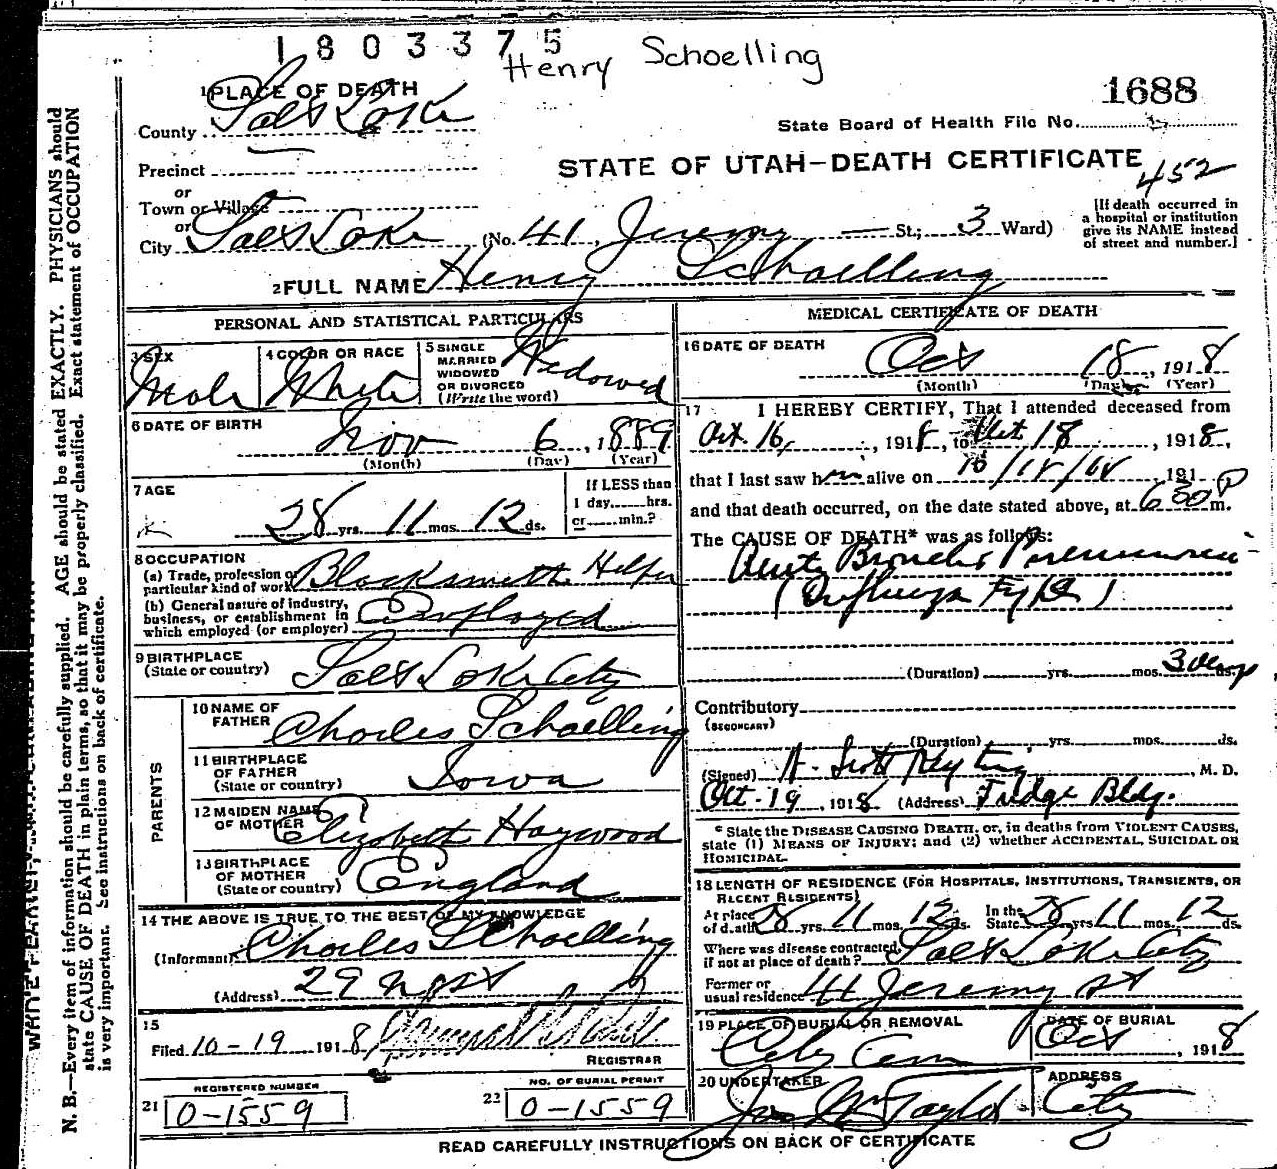 1803375
Henry Schoelling
1688
1 PLACE OF DEATH
County Salt Lake
State Board of Health File No.
Precinct
STATE OF UTAH—DEATH CERTIFICATE
452
or
Town or Village
or
City Salt Lake (No. 41, Jeremy St.; 3 Ward)
[If death occurred in
a hospital or institution
give its NAME instead
of street and number.]
2 FULL NAME Henry Schoelling
PERSONAL AND STATISTICAL PARTICULARS
3 SEX
Male
4 COLOR OR RACE
White
5 SINGLE
MARRIED
WIDOWED
OR DIVORCED
(Write the word)
Widowed
6 DATE OF BIRTH
Nov 6, 1889
(Month) (Day) (Year)
7 AGE
28 yrs. 11 mos. 12 ds.
If LESS than
1 day, hrs.
or min.?
8 OCCUPATION
(a) Trade, profession or
particular kind of work Blacksmith Helper
(b) General nature of industry,
business, or establishment in
which employed (or employer) Employed
9 BIRTHPLACE
(State or country) Salt Lake City
PARENTS
10 NAME OF
FATHER Charles Schoelling
11 BIRTHPLACE
OF FATHER
(State or country) Iowa
12 MAIDEN NAME
OF MOTHER Elizabeth Haywood
13 BIRTHPLACE
OF MOTHER
(State or country) England
14 THE ABOVE IS TRUE TO THE BEST OF MY KNOWLEDGE
(Informant) Charles Schoelling
(Address) 29
15
Filed 10-19 1918
REGISTRAR
REGISTERED NUMBER
21 0-1559
NO. OF BURIAL PERMIT
22 0-1559
MEDICAL CERTIFICATE OF DEATH
16 DATE OF DEATH
Oct 18, 1918
(Month) (Day) (Year)
17 I HEREBY CERTIFY, That I attended deceased from
Oct. 16, 1918, to Oct. 18, 1918,
that I last saw him alive on 191
and that death occurred, on the date stated above, at 6 30 P m.
The CAUSE OF DEATH* was as follows:
Acute Broncho Pneumonia
(Influenza Type)
(Duration) yrs. mos. 3 days ds.
Contributory
(SECONDARY)
(Duration) yrs. mos. ds.
(Signed) H. Scott , M. D.
Oct-19, 1918 (Address) Judge Bldg.
* State the DISEASE CAUSING DEATH, or, in deaths from VIOLENT CAUSES,
state (1) MEANS OF INJURY; and (2) whether ACCIDENTAL, SUICIDAL OR
HOMICIDAL.
18 LENGTH OF RESIDENCE (FOR HOSPITALS, INSTITUTIONS, TRANSIENTS, OR
RECENT RESIDENTS)
At place
of death 28 yrs. 11 mos. 12 ds. In the
State 28 yrs. 11 mos. 12 ds.
Where was disease contracted,
if not at place of death? Salt Lake City
Former or
usual residence 41 Jeremy St
19 PLACE OF BURIAL OR REMOVAL
City Cem
DATE OF BURIAL
Oct , 1918
20 UNDERTAKER
Taylor
ADDRESS
City
READ CAREFULLY INSTRUCTIONS ON BACK OF CERTIFICATE
N. B.—Every item of information should be carefully supplied. AGE should be stated EXACTLY. PHYSICIANS should
state CAUSE OF DEATH in plain terms, so that it may be properly classified. Exact statement of OCCUPATION
is very important. See instructions on back of certificate.